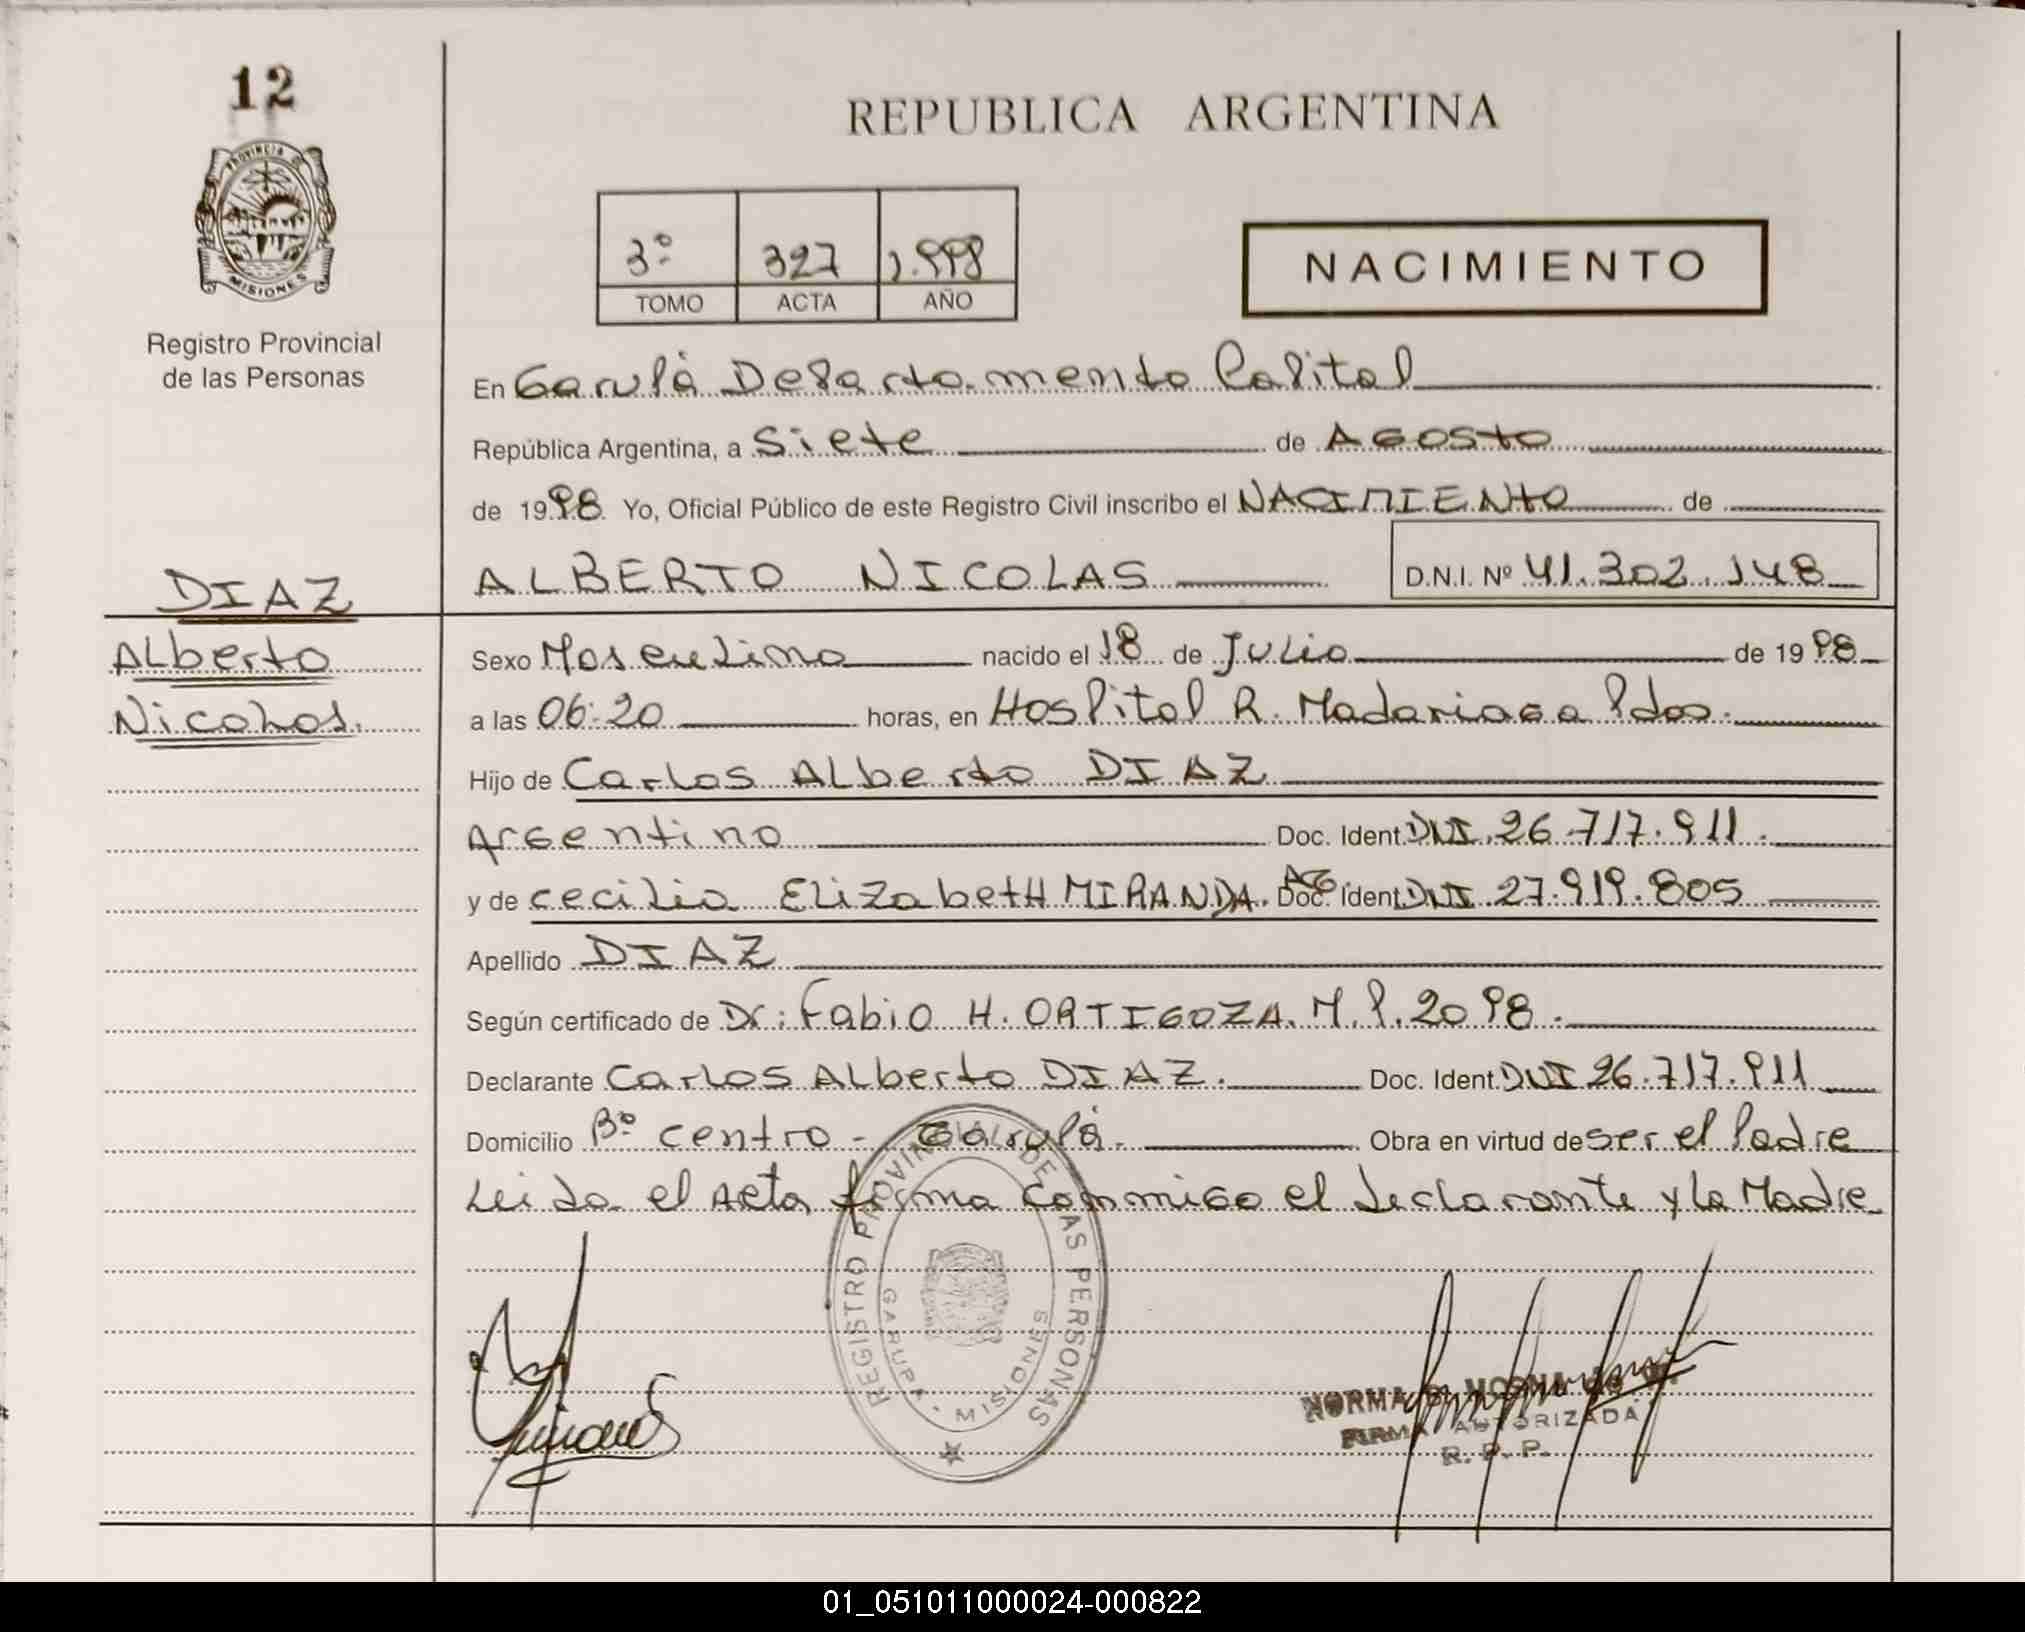 12
PROVINCIA DE
MISIONES
Registro Provincial
de las Personas
DIAZ
Alberto
Nicolas.
REPUBLICA ARGENTINA
3º 327 1.998
TOMO ACTA AÑO
NACIMIENTO
En Garupá Departamento Capital
República Argentina, a Siete de Agosto
de 1998 Yo, Oficial Público de este Registro Civil inscribo el NACIMIENTO de
ALBERTO NICOLAS D.N.I. Nº 41.302.148
Sexo Masculino nacido el 18 de Julio de 1998
a las 06:20 horas, en Hospital R. Madariaga Pdas.
Hijo de Carlos Alberto DIAZ
Argentino Doc. Ident. DNI. 26.717.911.
y de Cecilia Elizabeth MIRANDA. Arg Doc. Ident. DNI 27.919.805
Apellido DIAZ
Según certificado de Dr: Fabio H. ORTIGOZA. M.P. 2098.
Declarante Carlos Alberto DIAZ. Doc. Ident. DNI 26.717.911
Domicilio Bº Centro - Garupá. Obra en virtud de ser el Padre
Leida el Acta firma conmigo el declarante y la Madre
REGISTRO PROVINCIAL DE LAS PERSONAS
GARUPA - MISIONES
NORMA
FIRMA AUTORIZADA
R. P. P.
01_051011000024-000822